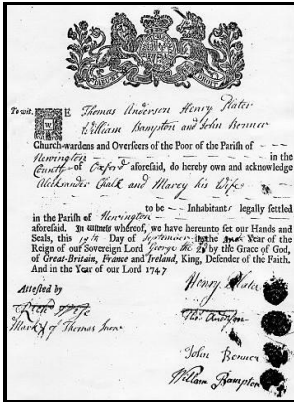 To wit. WE Thomas Anderson Henry Plater
William Bampton and John Benner
Church-wardens and Overseers of the Poor of the Parish of
Newington in the
County of Oxford aforesaid, do hereby own and acknowledge
Alecksander Chalk and Marcy his Wife
to be Inhabitants legally settled
in the Parish of Newington
aforesaid. In Witness whereof, we have hereunto set our Hands and
Seals, this Day of September in the Year of the
Reign of our Sovereign Lord George the 2d by the Grace of God,
of Great-Britain, France and Ireland, King, Defender of the Faith.
And in the Year of our Lord 1747
Attested by
Henry Plater
Tho: Anderson
Mark X of Thomas
John Benner
William Bampton